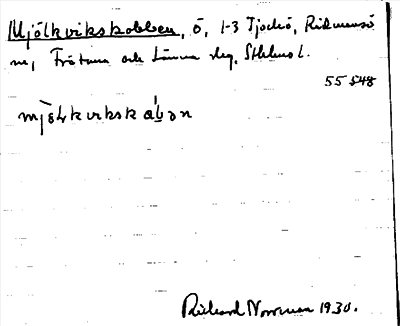 Mjölkvikskobben, ö, 1-3 Tjockö, Rådmansö
m, Frötuna och Länna slg, Sthlms l.
55 548
mjò̀lkvikskåbən
Rickard Norrman 1930.